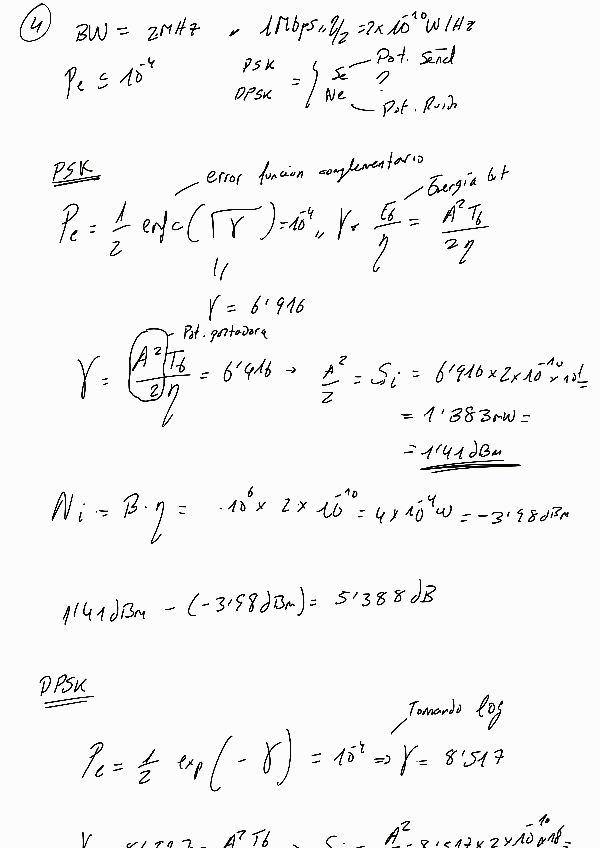 ④ BW = 2MHz " 1Mbps " η/2 = 2x10^-10 W/Hz
Pe ≤ 10^-4 PSK DPSK = { Se — Pot. Señal ? Ne — Pot. Ruido
PSK
error funcion complementario
Pe = 1/2 erfc(√γ) = 10^-4 " γ = Eb/η = A² Tb / 2η Energía bit
"
γ = 6'916
Pot. portadora
γ = A² Tb / 2η = 6'916 → A²/2 = Si = 6'916 x 2x10^-10 x 10^6 =
= 1'383mW =
= 1'41 dBm
Ni = B·η = ·10^6 x 2 x 10^-10 = 4 x 10^-4 W = -3'98 dBm
1'41 dBm - (-3'98 dBm) = 5'388 dB
DPSK
Tomando log
Pe = 1/2 exp(-γ) = 10^-4 => γ = 8'517
A² Tb → A² = 8'517 x 2x10^-10 x 10^6 =